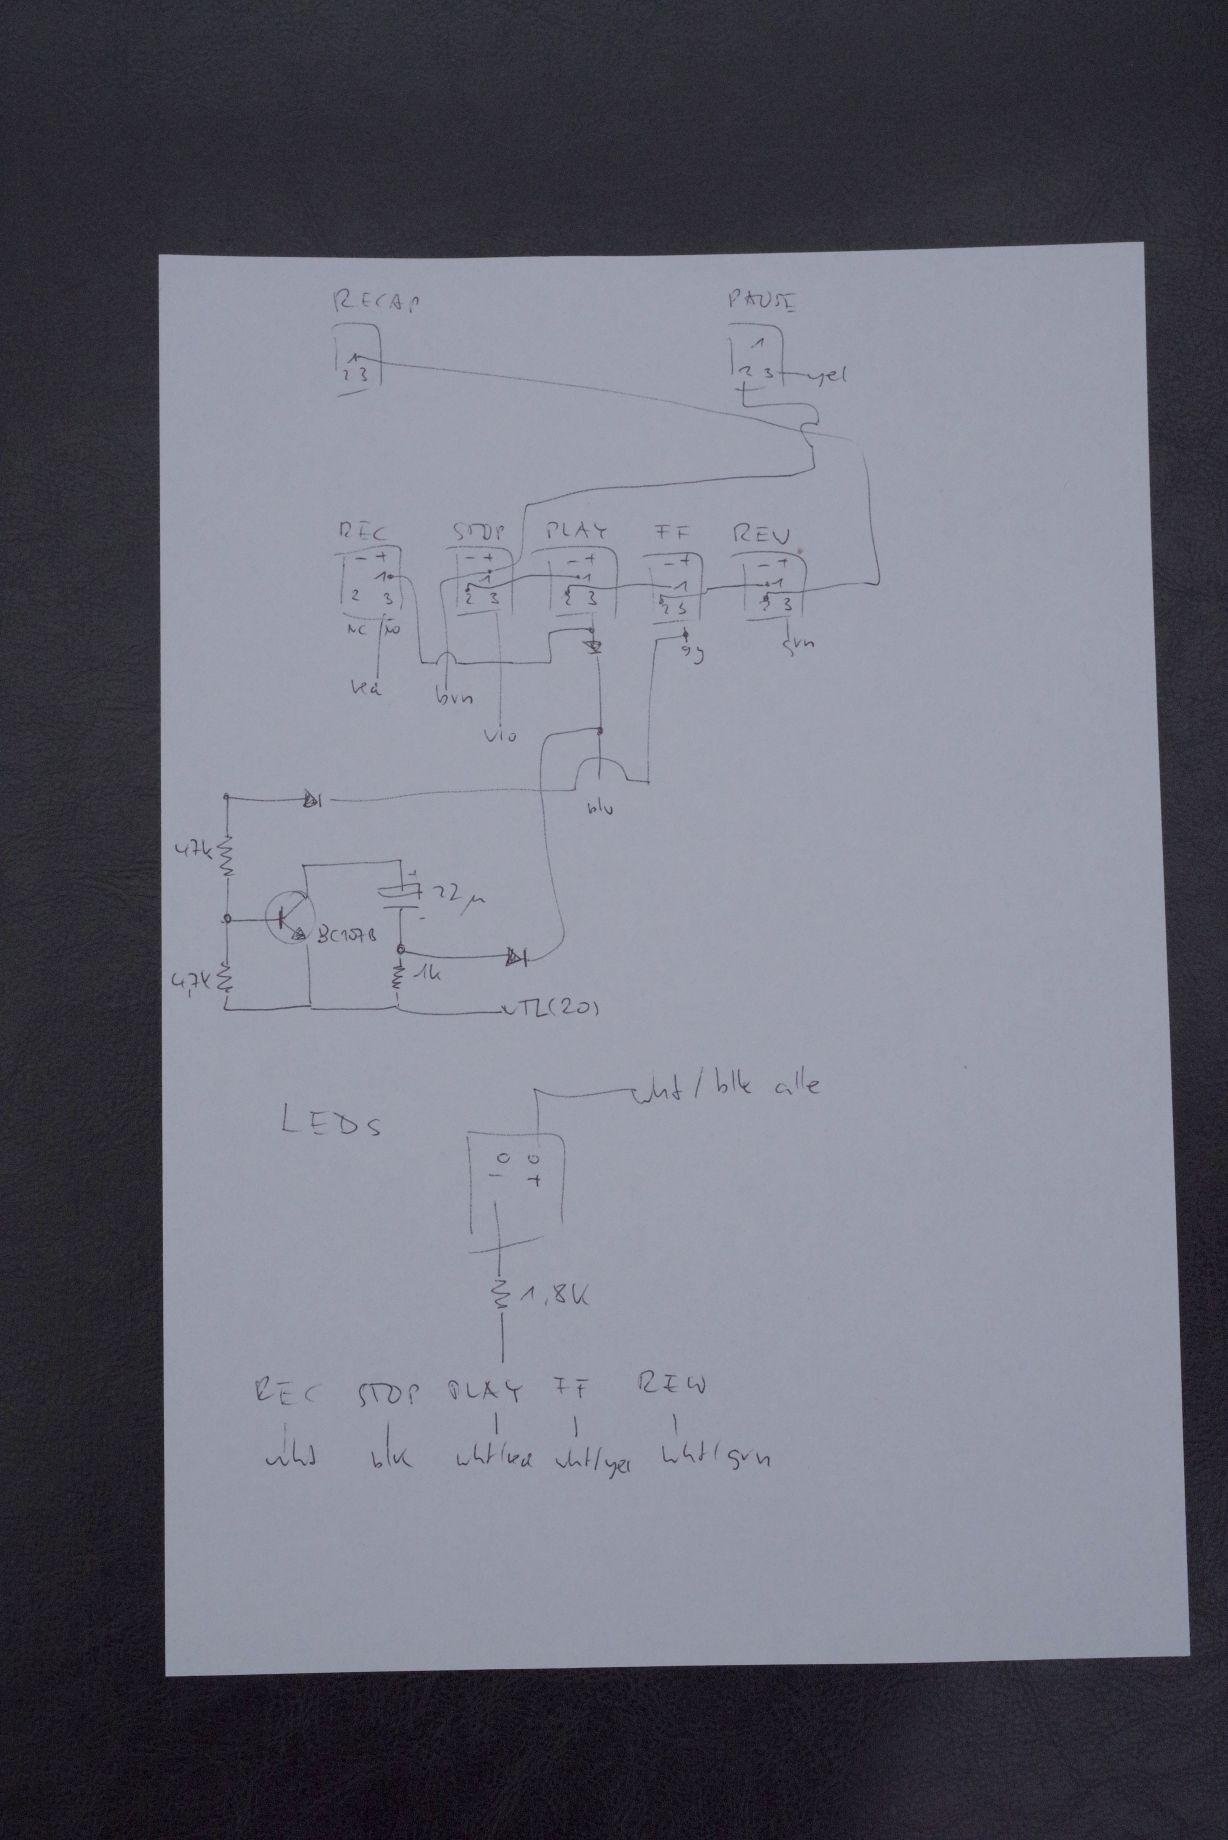 RECAP PAUSE
1 1
2 3 2 3 yel
REC STOP PLAY FF REW
- + - + - + - + - +
1 1 1 1 1
2 3 2 3 2 3 2 3 2 3
NC NO gy grn
red brn
vio
blu
47k
22µ
BC107B
4,7k 1k
VTL(20)
wht/blk alle
LEDs
- +
1,8K
REC STOP PLAY FF REW
wht blk wht/red wht/yel wht/grn